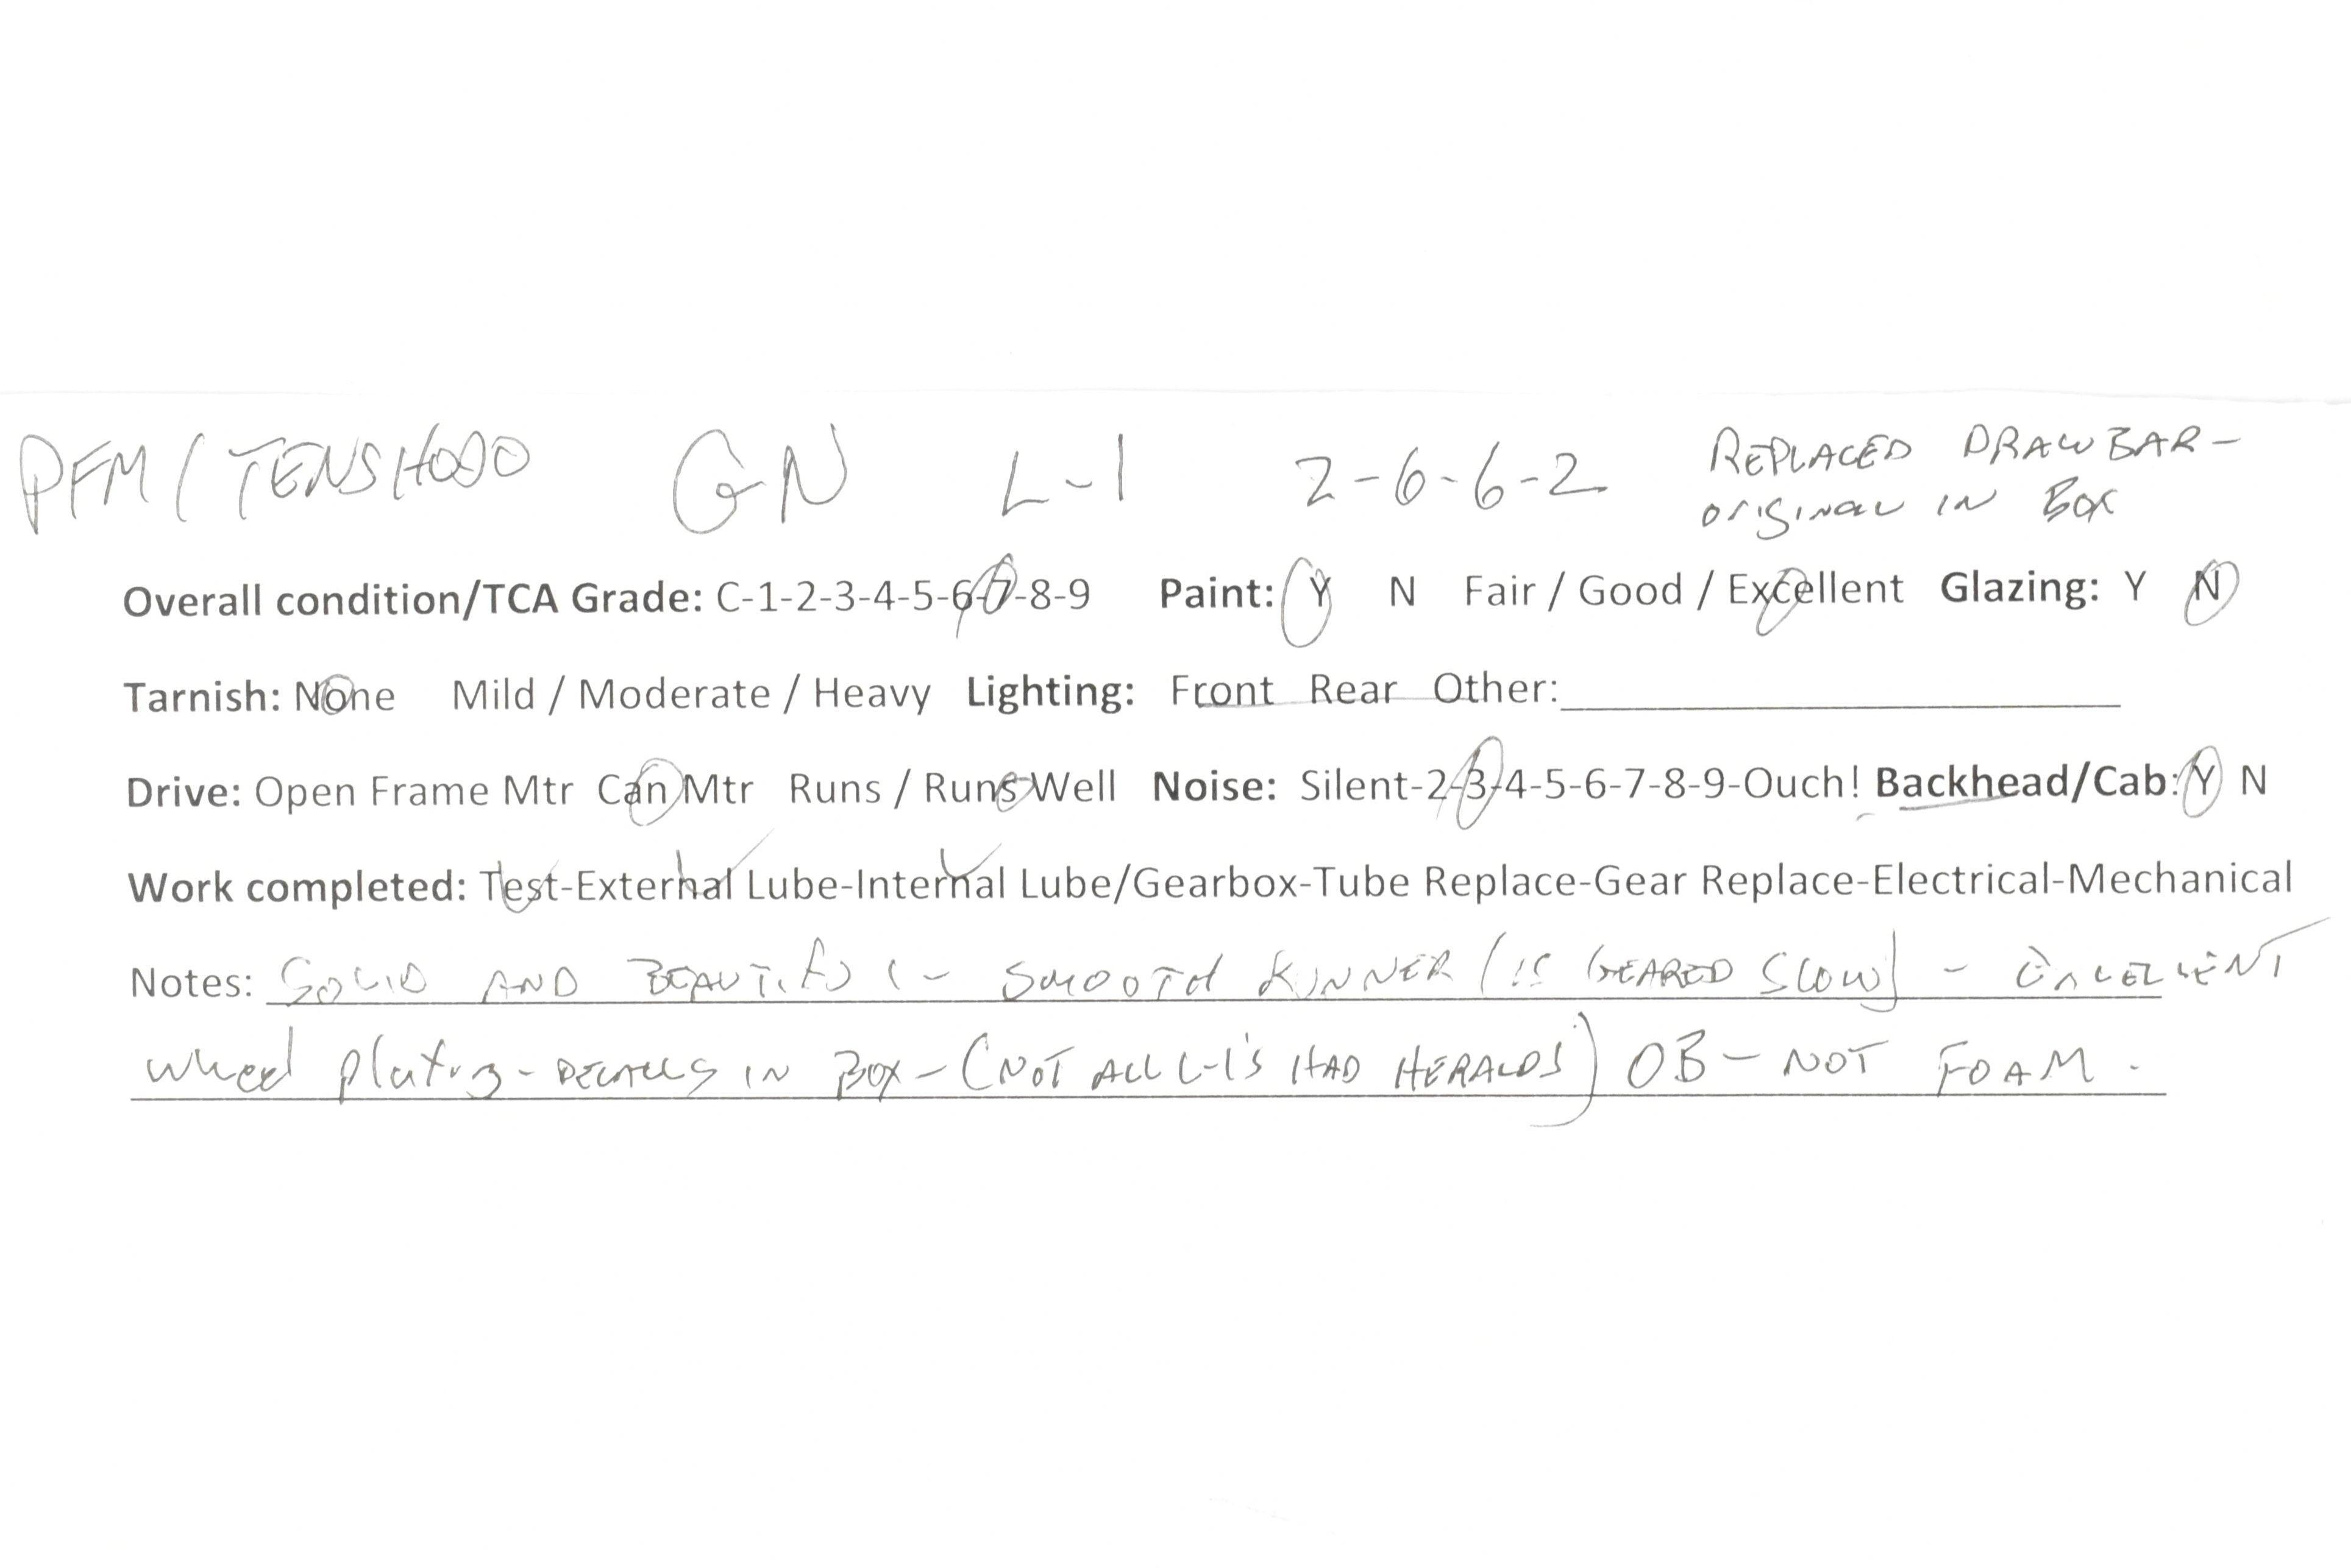 PFM / TENSHODO GN L-1 2-6-6-2 REPLACED DRAWBAR -
ORIGINAL IN BOX
Overall condition/TCA Grade: C-1-2-3-4-5-6-7-8-9 Paint: Y N Fair / Good / Excellent Glazing: Y N
Tarnish: None Mild / Moderate / Heavy Lighting: Front Rear Other:
Drive: Open Frame Mtr Can Mtr Runs / Runs Well Noise: Silent-2-3-4-5-6-7-8-9-Ouch! Backhead/Cab: Y N
Work completed: Test-External Lube-Internal Lube/Gearbox-Tube Replace-Gear Replace-Electrical-Mechanical
Notes: SOLID AND BEAUTIFUL - SMOOTH RUNNER (IS GEARED SLOW) - EXCELLENT
wheel plating - DECALS IN BOX - (NOT ALL L-1'S HAD HERALDS) OB - NOT FOAM.